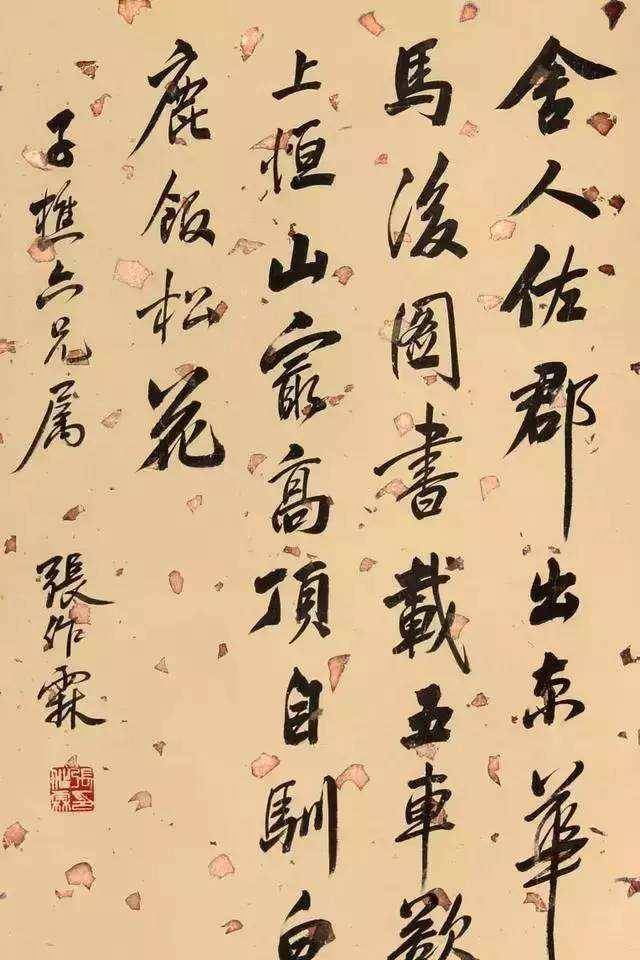 舍人佐郡出東華
馬後圖書載五車欲
上恒山最高頂自馴白
鹿飯松花
子樵六兄属
張作霖
張作霖印